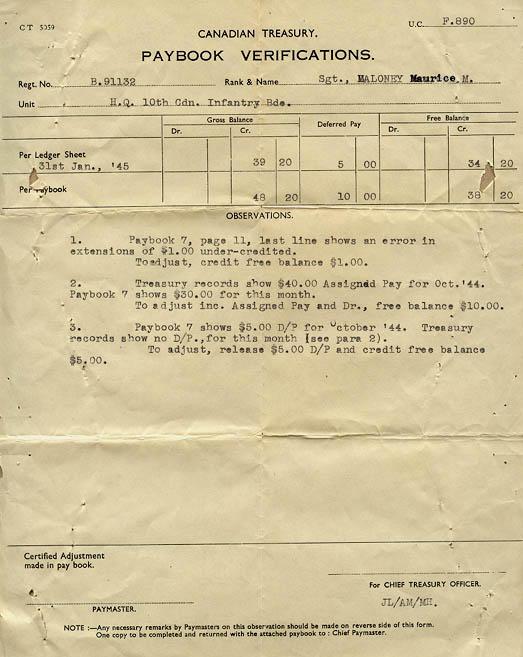 CT 5359
U.C. F.890
CANADIAN TREASURY.
PAYBOOK VERIFICATIONS.
Regt. No. B.91132 Rank & Name Sgt., MALONEY Maurice M.
Unit H.Q. 10th Cdn. Infantry Bde.
Gross Balance Deferred Pay Free Balance
Dr. Cr. Dr. Cr.
Per Ledger Sheet
31st Jan., '45 39 20 5 00 34 20
Per Paybook 48 20 10 00 38 20
OBSERVATIONS.
1. Paybook 7, page 11, last line shows an error in
extensions of $1.00 under-credited.
To adjust, credit free balance $1.00.
2. Treasury records show $40.00 Assigned Pay for Oct.'44.
Paybook 7 shows $30.00 for this month.
To adjust inc. Assigned Pay and Dr., free balance $10.00.
3. Paybook 7 shows $5.00 D/P for October '44. Treasury
records show no D/P.,for this month (see para 2).
To adjust, release $5.00 D/P and credit free balance
$5.00.
Certified Adjustment
made in pay book.
For CHIEF TREASURY OFFICER.
JL/AM/MH.
PAYMASTER.
NOTE :—Any necessary remarks by Paymasters on this observation should be made on reverse side of this form.
One copy to be completed and returned with the attached paybook to : Chief Paymaster.